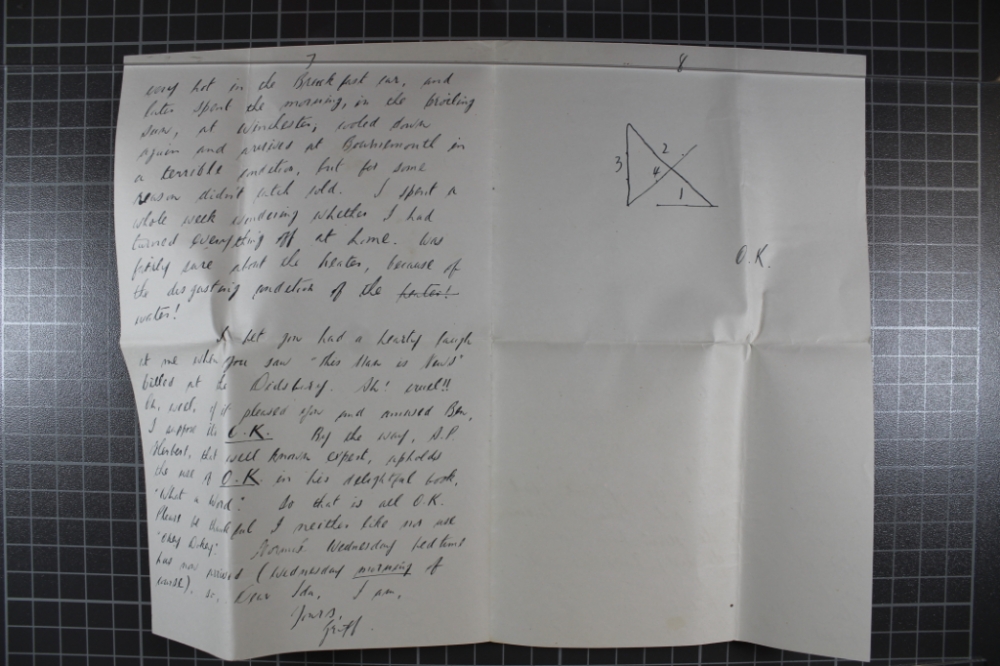 7
very hot in the Breakfast car, and
later spent the morning, in the broiling
sun, at Winchester, cooled down
again and arrived at Bournemouth in
a terrible condition, but for some
reason didn't catch cold. I spent a
whole week wondering whether I had
turned everything off at home. Was
fairly sure about the heater, because of
the disgusting condition of the heater!
water!
I bet you had a hearty laugh
at me when you saw "This Man is News"
billed at the Didsbury. Ah! cruel!!
Oh, well, if it pleased you and amused Ben,
I suppose its O.K. By the way, A.P.
Herbert, that well known expert, upholds
the use of O.K. in his delightful book,
"What a Word". So that is all O.K.
Please be thankful I neither like nor use
"Okey Dokey". Wednesday bedtime
has now arrived (Wednesday morning of
course), so, Dear Ida, I am,
Yours,
Griff.
8
3
2
4
1
O.K.